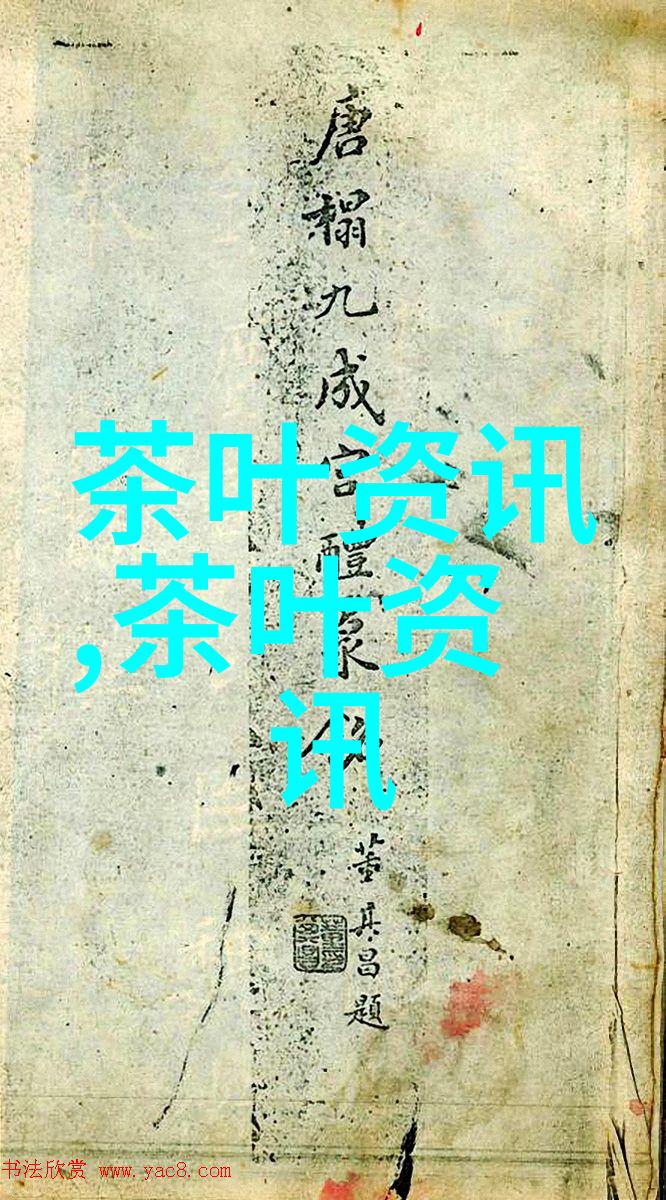 唐榻九成宫醴泉銘
董其昌題
茶叶资讯
,茶叶资
讯
书法欣赏 www.yac8.com